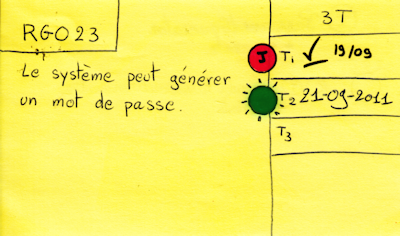 RG023
Le système peut générer
un mot de passe.
3T
J
T1 ✓ 19/09
T2 21-09-2011
T3